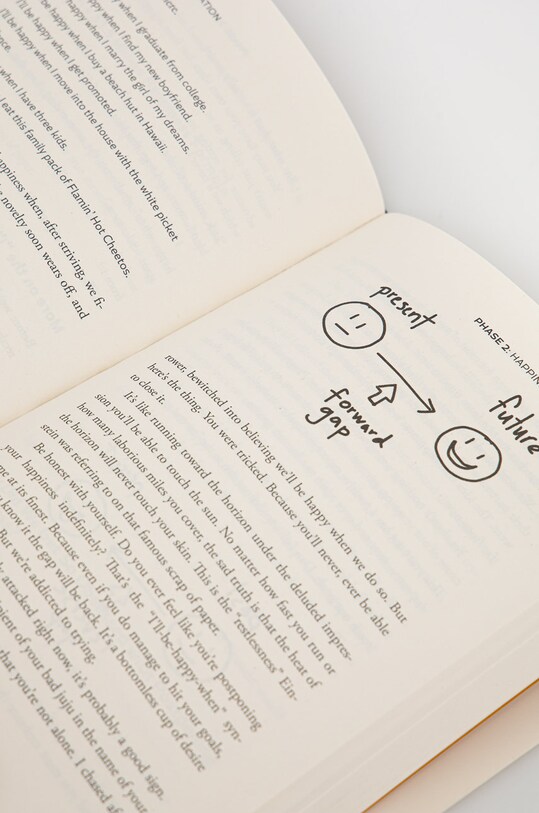 ATION
when I graduate from college.
when I find my new boyfriend.
happy when I marry the girl of my dreams.
be happy when I buy a beach hut in Hawaii.
I'll be happy when I get promoted.
I'll be happy when I move into the house with the white picket
when I have three kids.
I eat this family pack of Flamin' Hot Cheetos.
happiness when, after striving, we fi-
novelty soon wears off, and
PHASE 2: HAPPIN
present
forward
gap
future
rower, bewitched into believing we'll be happy when we do so. But
here's the thing. You were tricked. Because you'll never, ever be able
to close it.
It's like running toward the horizon under the deluded impres-
sion you'll be able to touch the sun. No matter how fast you run or
how many laborious miles you cover, the sad truth is that the heat of
the horizon will never touch your skin. This is the "restlessness" Ein-
stein was referring to on that famous scrap of paper.
Be honest with yourself. Do you ever feel like you're postponing
your happiness indefinitely? That's the "I'll-be-happy-when" syn-
me at its finest. Because even if you do manage to hit your goals,
know it the gap will be back. It's a bottomless cup of desire
But we're addicted to trying.
attacked right now, it's probably a good sign.
pient of your bad juju in the name of your
that you're not alone. I chased